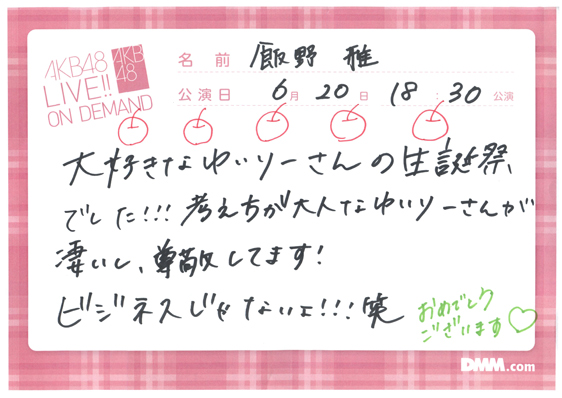 AKB48
LIVE!!
ON DEMAND
AKB
48
名前 飯野 雅
公演日 6月 20日 18:30 公演
大好きなゆいりーさんの生誕祭、
でした!!!考え方が大人なゆいりーさんが
凄いし、尊敬してます!
ビジネスじゃないよ!!!笑
おめでとう
ございます♡
DMM.com